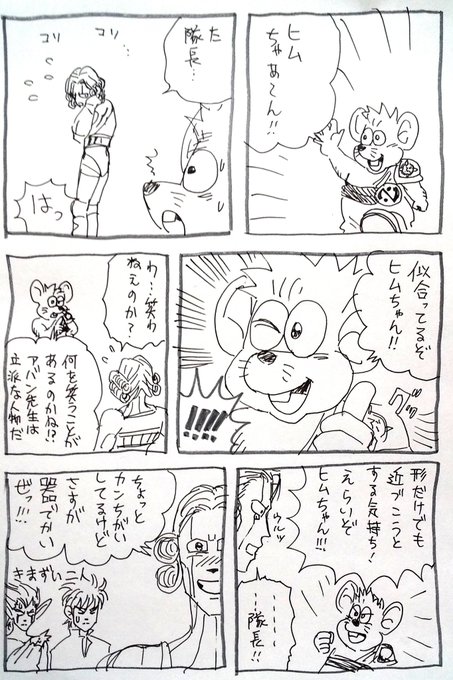 ヒム
ちゃあ〜ん!!
た
隊長…
コソ
コソ
はっ
似合ってるぞ
ヒムちゃん!!
グッ
!!!!
わ…笑わ
ねえのか?
何を笑うことが
あるのかね!?
アバン先生は
立派な人物だ
形だけでも
近づこうと
する気持ち!
えらいぞ
ヒムちゃん!!!
ウルッ
………
………
隊長!!
ちょっと
カンちがい
してるけど
さすが
器でかい
ぜッ!!!
きまずい二人